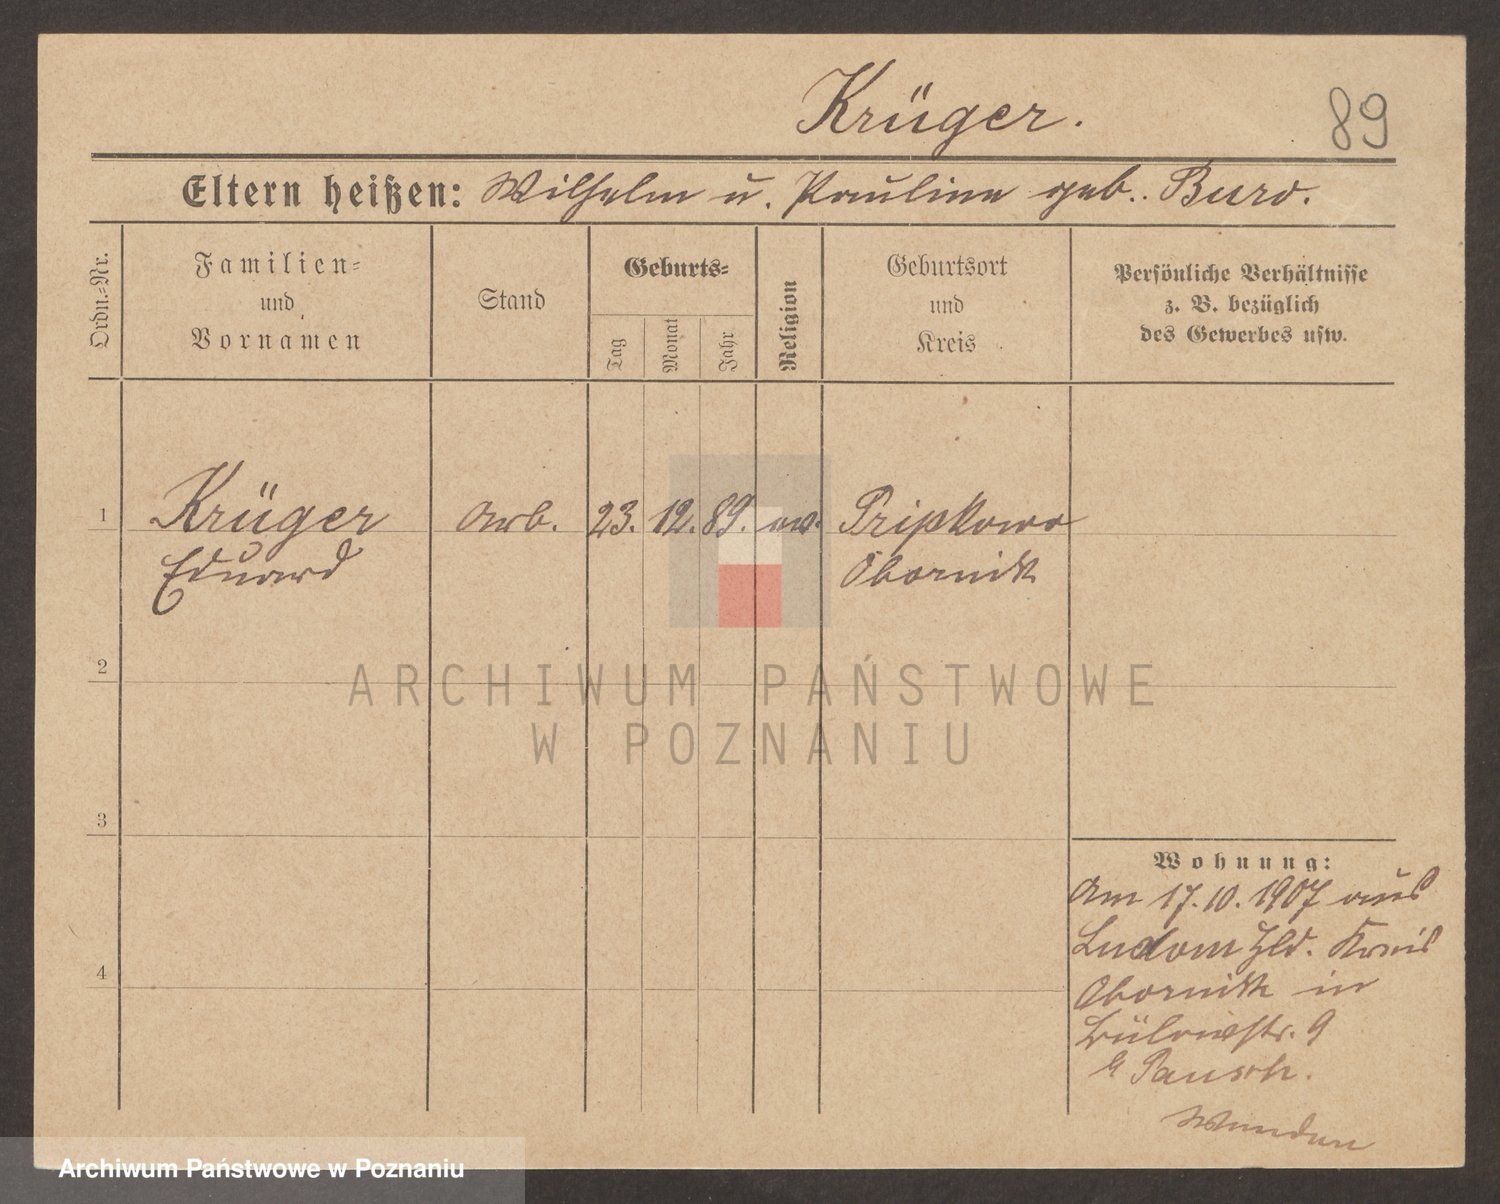 Krüger.
89
Eltern heißen: Wilhelm u. Pauline geb. Buro.
Ordn.-Nr.
Familien-
und
Vornamen
Stand
Geburts-
Tag
Monat
Jahr
Religion
Geburtsort
und
Kreis
Persönliche Verhältnisse
z. B. bezüglich
des Gewerbes usw.
1 Krüger Arb. 23. 12. 89. ev. Pripkowo
Eduard Obornik
2
3
4
Wohnung:
Am 17.10.1907 aus
Ludom Hld. Kreis
Obornik in
Bülowstr. 9
b Pausch.
ARCHIWUM PAŃSTWOWE
W POZNANIU
Archiwum Państwowe w Poznaniu